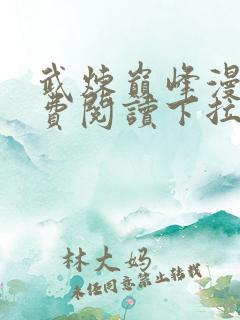 武炼巅峰漫
費閱讀下拉
林大妈
未经同意禁止转载